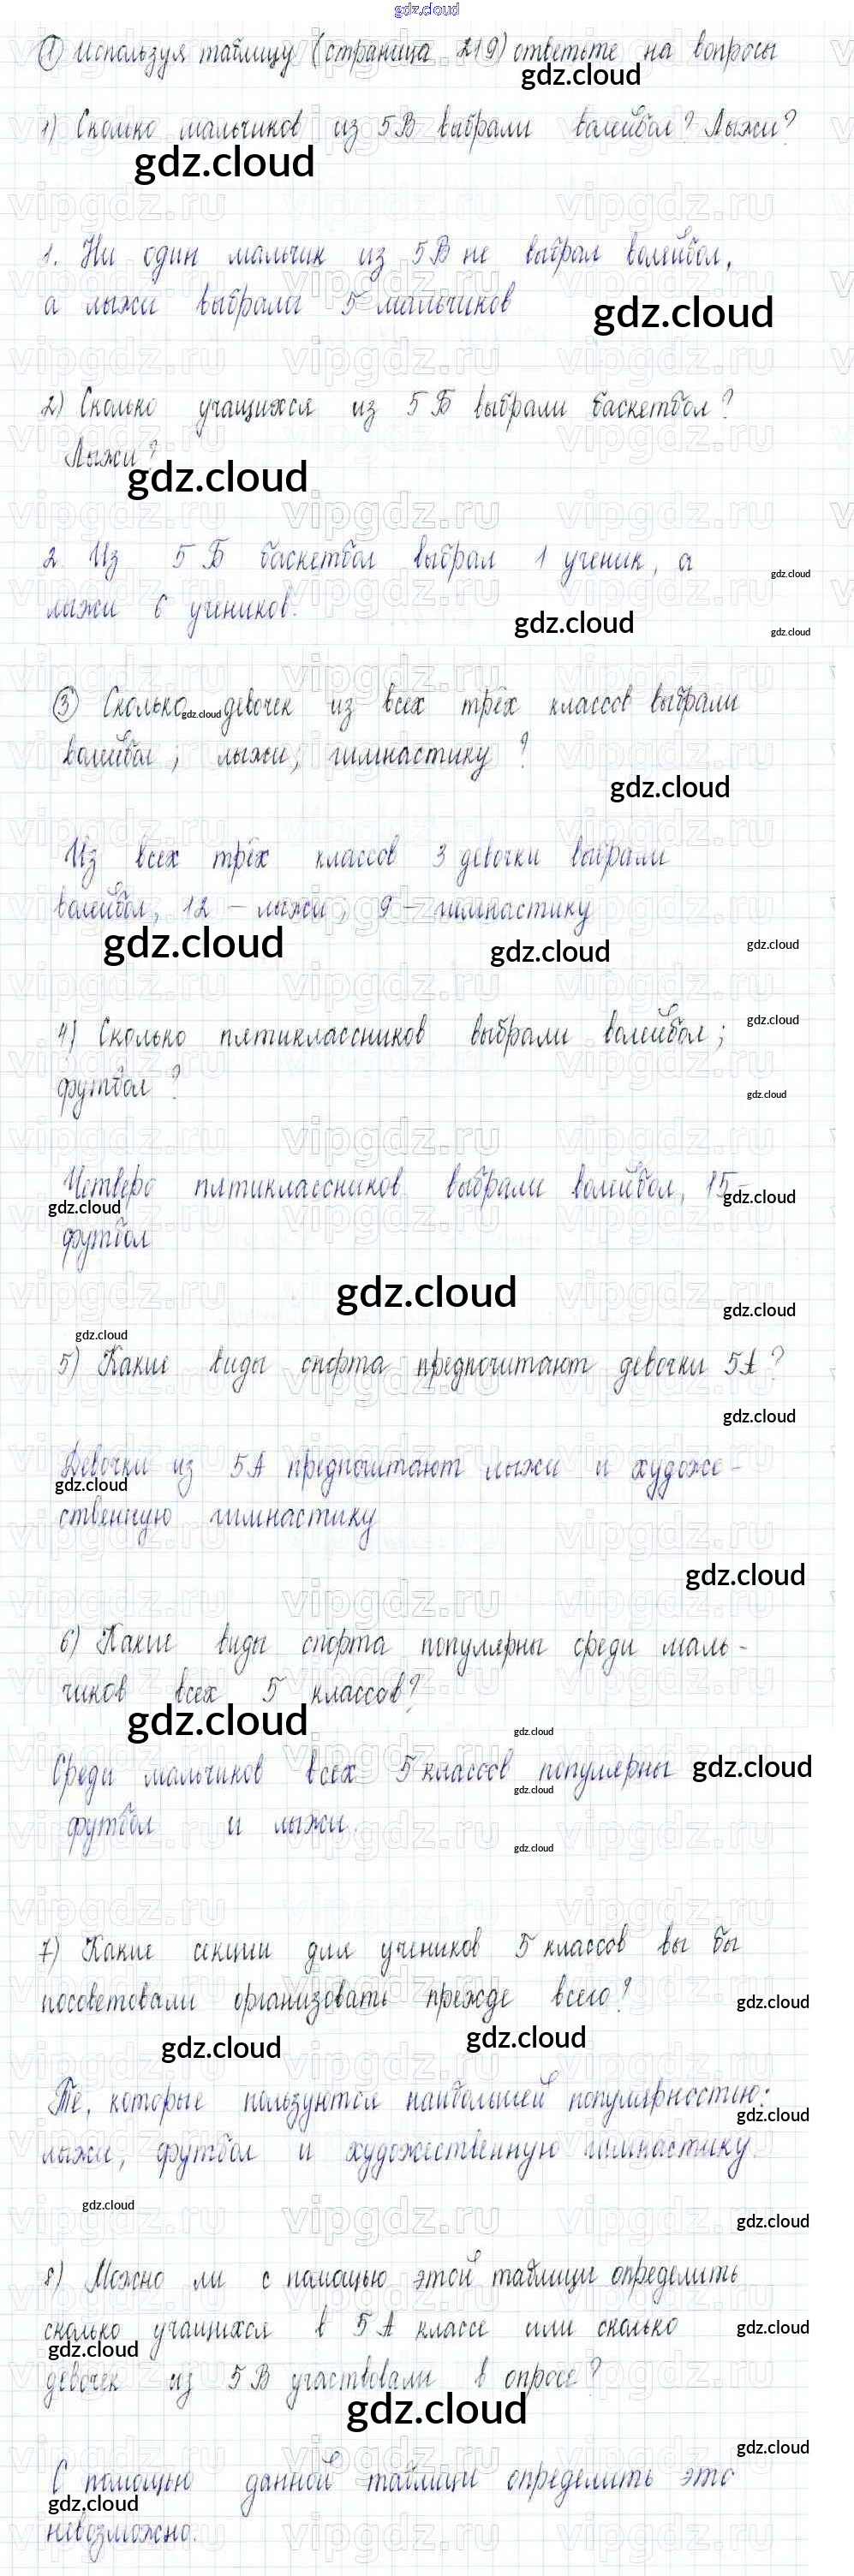 gdz.cloud
① Используя таблицу (страница 219) ответьте на вопросы
gdz.cloud
1) Сколько мальчиков из 5В выбрали волейбол? Лыжи?
gdz.cloud
1. Ни один мальчик из 5В не выбрал волейбол,
а лыжи выбрали 5 мальчиков
gdz.cloud
2) Сколько учащихся из 5Б выбрали баскетбол?
Лыжи?
gdz.cloud
2. Из 5Б баскетбол выбрал 1 ученик, а
gdz.cloud
лыжи 6 учеников.
gdz.cloud
gdz.cloud
③ Сколько девочек из всех трёх классов выбрали
gdz.cloud
волейбол, лыжи, гимнастику?
gdz.cloud
Из всех трёх классов 3 девочки выбрали
волейбол, 12 – лыжи, 9 – гимнастику
gdz.cloud
gdz.cloud
gdz.cloud
4) Сколько пятиклассников выбрали волейбол;
gdz.cloud
футбол?
gdz.cloud
Четверо пятиклассников выбрали волейбол, 15-
gdz.cloud
gdz.cloud
футбол
gdz.cloud
gdz.cloud
gdz.cloud
5) Какие виды спорта предпочитают девочки 5А?
gdz.cloud
Девочки из 5А предпочитают лыжи и художе-
gdz.cloud
ственную гимнастику
gdz.cloud
6) Какие виды спорта популярны среди маль-
чиков всех 5 классов?
gdz.cloud
gdz.cloud
Среди мальчиков всех 5 классов популярны
gdz.cloud
gdz.cloud
футбол и лыжи.
gdz.cloud
7) Какие секции для учеников 5 классов вы бы
посоветовали организовать прежде всего?
gdz.cloud
gdz.cloud
gdz.cloud
Те, которые пользуются наибольшей популярностью:
gdz.cloud
лыжи, футбол и художественную гимнастику.
gdz.cloud
gdz.cloud
8) Можно ли с помощью этой таблицы определить
сколько учащихся в 5А классе или сколько
gdz.cloud
gdz.cloud
девочек из 5В участвовали в опросе?
gdz.cloud
gdz.cloud
С помощью данной таблицы определить это
gdz.cloud
невозможно.